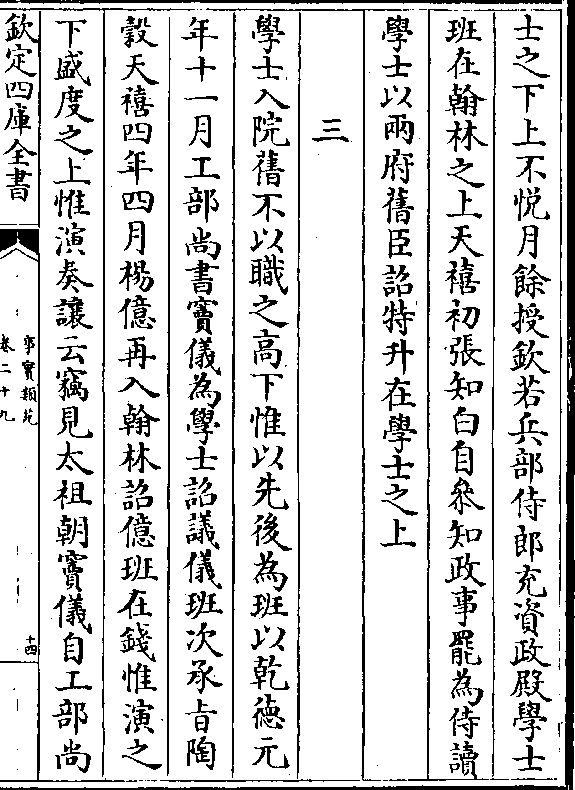 士之下上不悦月餘授欽若兵部侍郎充資政殿學士
班在翰林之上天禧初張知白自叅知政事罷為侍讀
學士以兩府舊臣詔特升在學士之上
三
學士入院舊不以職之高下惟以先後為班以乾徳元
年十一月工部尚書竇儀為學士詔議儀班次承㫖陶
穀天禧四年四月楊億再入翰林詔億班在錢惟演之
下盛度之上惟演奏讓云竊見太祖朝竇儀自工部尚
欽定四庫全書
事實類苑
卷二十九
十四